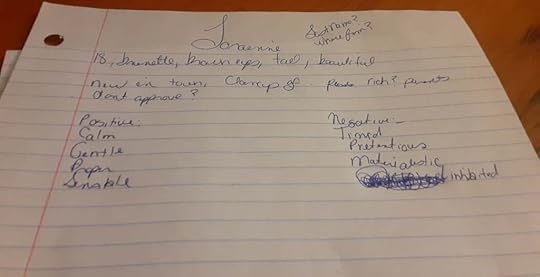 Loraenine
Last Name?
Where from?
18, brunette, brown eyes, tall, beautiful
New in town, Clancy's gf. rich? parents
dont approve?
Positive:
Calm
Gentle
Proper
Sensible
Negative:-
Timid
Pretentious
Materialistic
inhibited